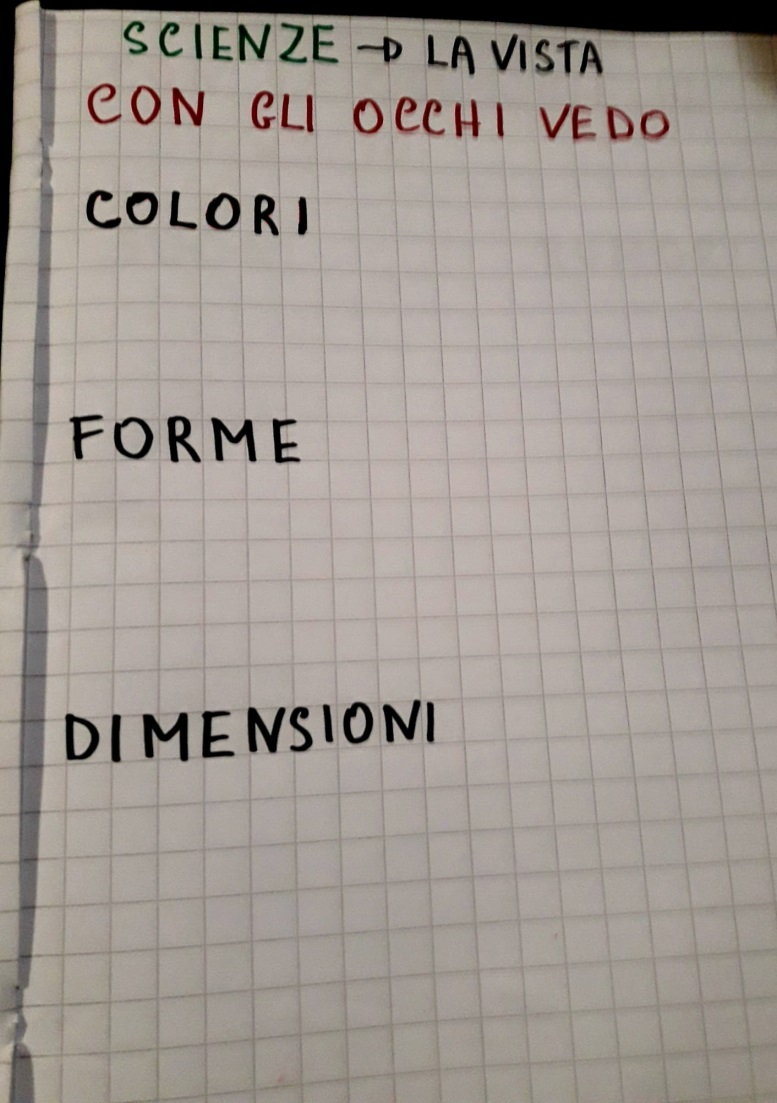 SCIENZE → LA VISTA
CON GLI OCCHI VEDO
COLORI
FORME
DIMENSIONI